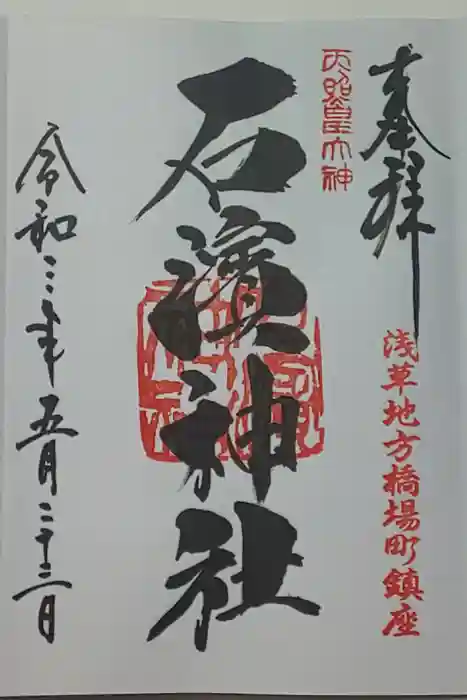 奉拝
浅草地方橋場町鎮座
天照皇大神
石濱神社
令和三年五月二十三日